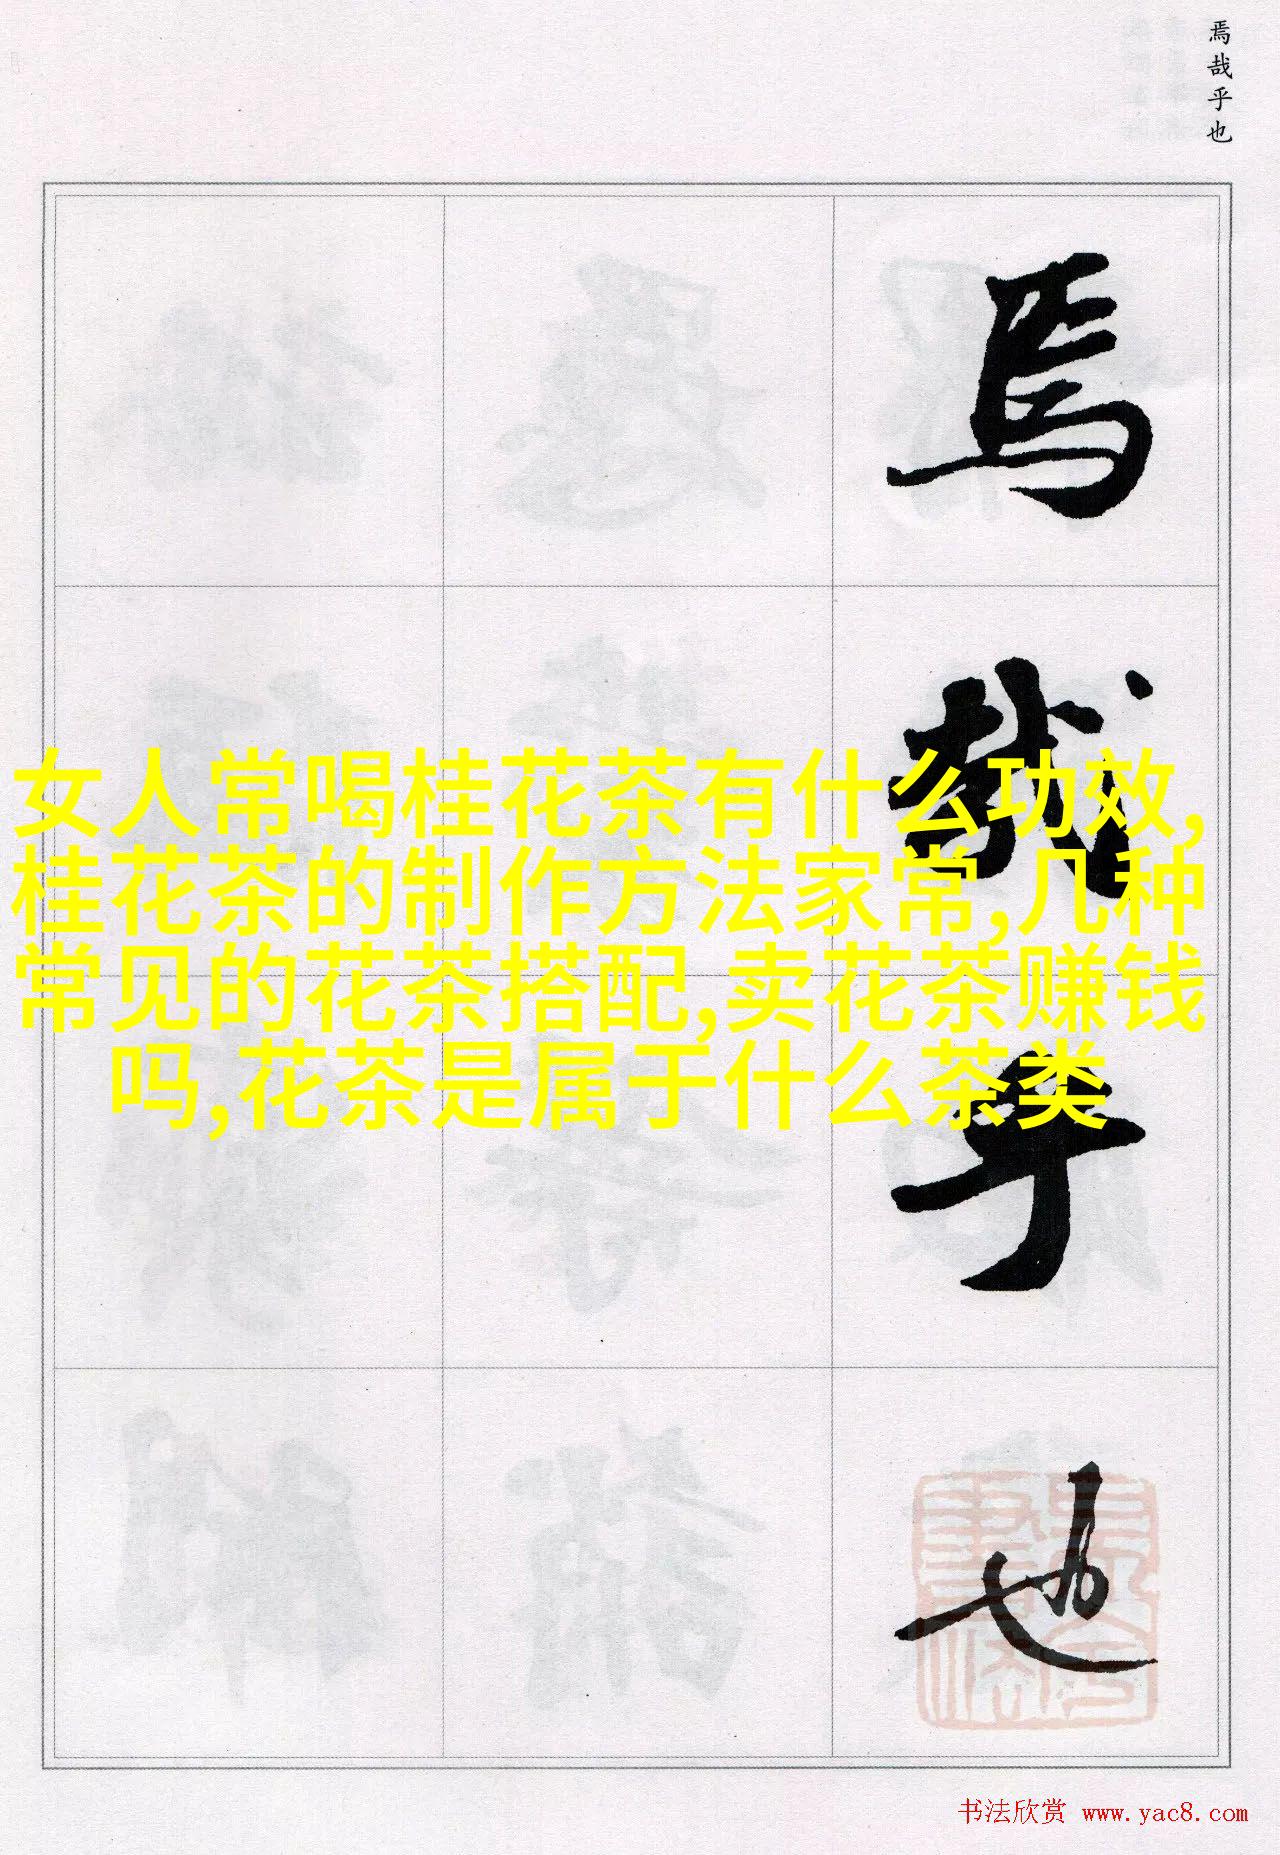 焉哉乎也
焉
哉
乎
也
女人常喝桂花茶有什么功效,
桂花茶的制作方法家常,几种
常见的花茶搭配,卖花茶赚钱
吗,花茶是属于什么茶类
书法欣赏 www.yac8.com